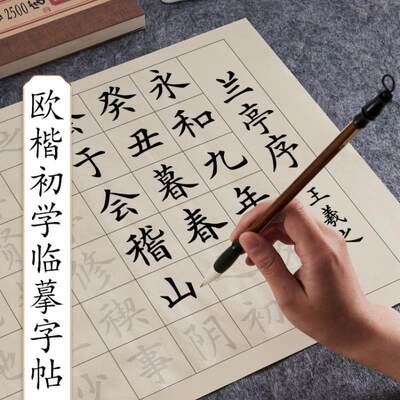 2500
欧楷初学临摹字帖
兰亭序
王羲之
永和九年
癸丑暮春
初
于会稽山阴
修禊事